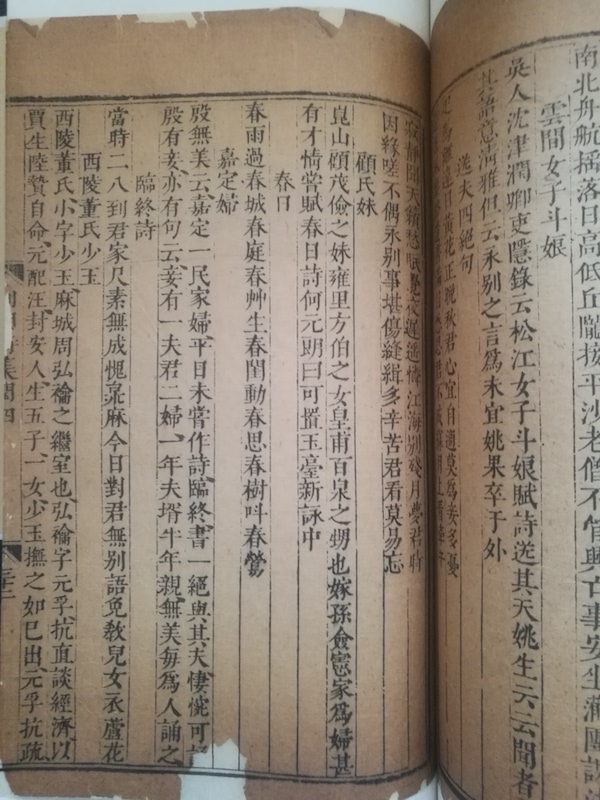 南北舟航落日高低丘隴拔平沙老僧不管興亡事安坐蒲團
雲間女子斗娘
吳人沈津潤卿吏隱錄云松江女子斗娘賦詩送其夫姚生云云聞者
其語意淸雅但云永别之言爲未宜姚果卒于外
送夫四絕句
日黃花正晩秋君心宜自適莫爲妾多憂
江海别殘月夢君時
因緣嗟不偶永别事堪傷縫緝多辛苦君看莫易忘
顧氏妹
崑山顧茂儉之妹雍里方伯之女皇甫百泉之甥也嫁孫僉憲家爲婦甚
有才情嘗賦春日詩何元朗曰可置玉臺新詠中
春日
春雨過春城春庭春艸生春閨動春思春樹呌春鶯
嘉定婦
殷無美云嘉定一民家婦平日未嘗作詩臨終書一絕與其夫悽惋可
殷有妾亦有句云妾有一夫君二婦一年夫壻半年親無美每爲人誦之
臨終詩
當時二八到君家尺素無成愧枲麻今日對君無别語免敎兒女衣蘆花
西陵董氏少玉
西陵董氏小字少玉麻城周弘禴之繼室也弘禴字元孚抗直談經濟以
賈生陸贄自命元配汪封安人生五子一女少玉撫之如巳出元孚抗疏
集閏四